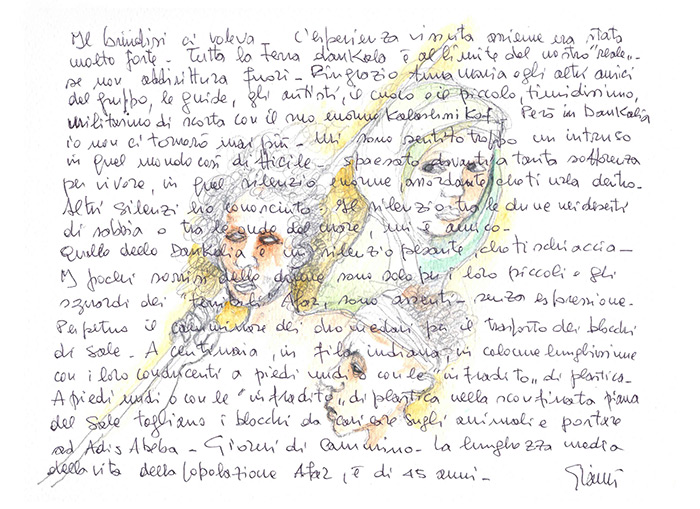 Il brindisi ci voleva - L'esperienza vissuta assieme era stata
molto forte - Tutta la Terra dankala è al limite del nostro "reale" -
se non addirittura fuori - Ringrazio Anna Maria e gli altri amici
del gruppo, le guide, gli autisti, il cuoco e il piccolo, timidissimo,
militarino di scorta con il suo enorme Kalashnikof - Però in Dankalia
io non ci tornerò mai più - Mi sono sentito troppo un intruso
in quel mondo così difficile - spaesato davanti a tanta sofferenza
per vivere, in quel silenzio enorme assordante che ti urla dentro -
Altri silenzi ho conosciuto - Il silenzio tra le dune nei deserti
di sabbia o tra le onde del mare mi è amico -
Quello della Dankalia è un silenzio pesante, che ti schiaccia -
I pochi sorrisi delle donne sono solo per i loro piccoli e gli
sguardi dei Afar, sono assenti - senza espressione -
Perpetuo il camminare dei dromedari per il trasporto dei blocchi
di sale - A centinaia, in fila indiana, in colonne lunghissime
con i loro conducenti a piedi nudi o con le "infradito" di plastica -
A piedi nudi o con le "infradito" di plastica nella sconfinata piana
del sale tagliano i blocchi da caricare sugli animali e portare
ad Adis Abeba - Giorni di cammino - La lunghezza media
della vita della popolazione Afar, è di 45 anni -
Gianni